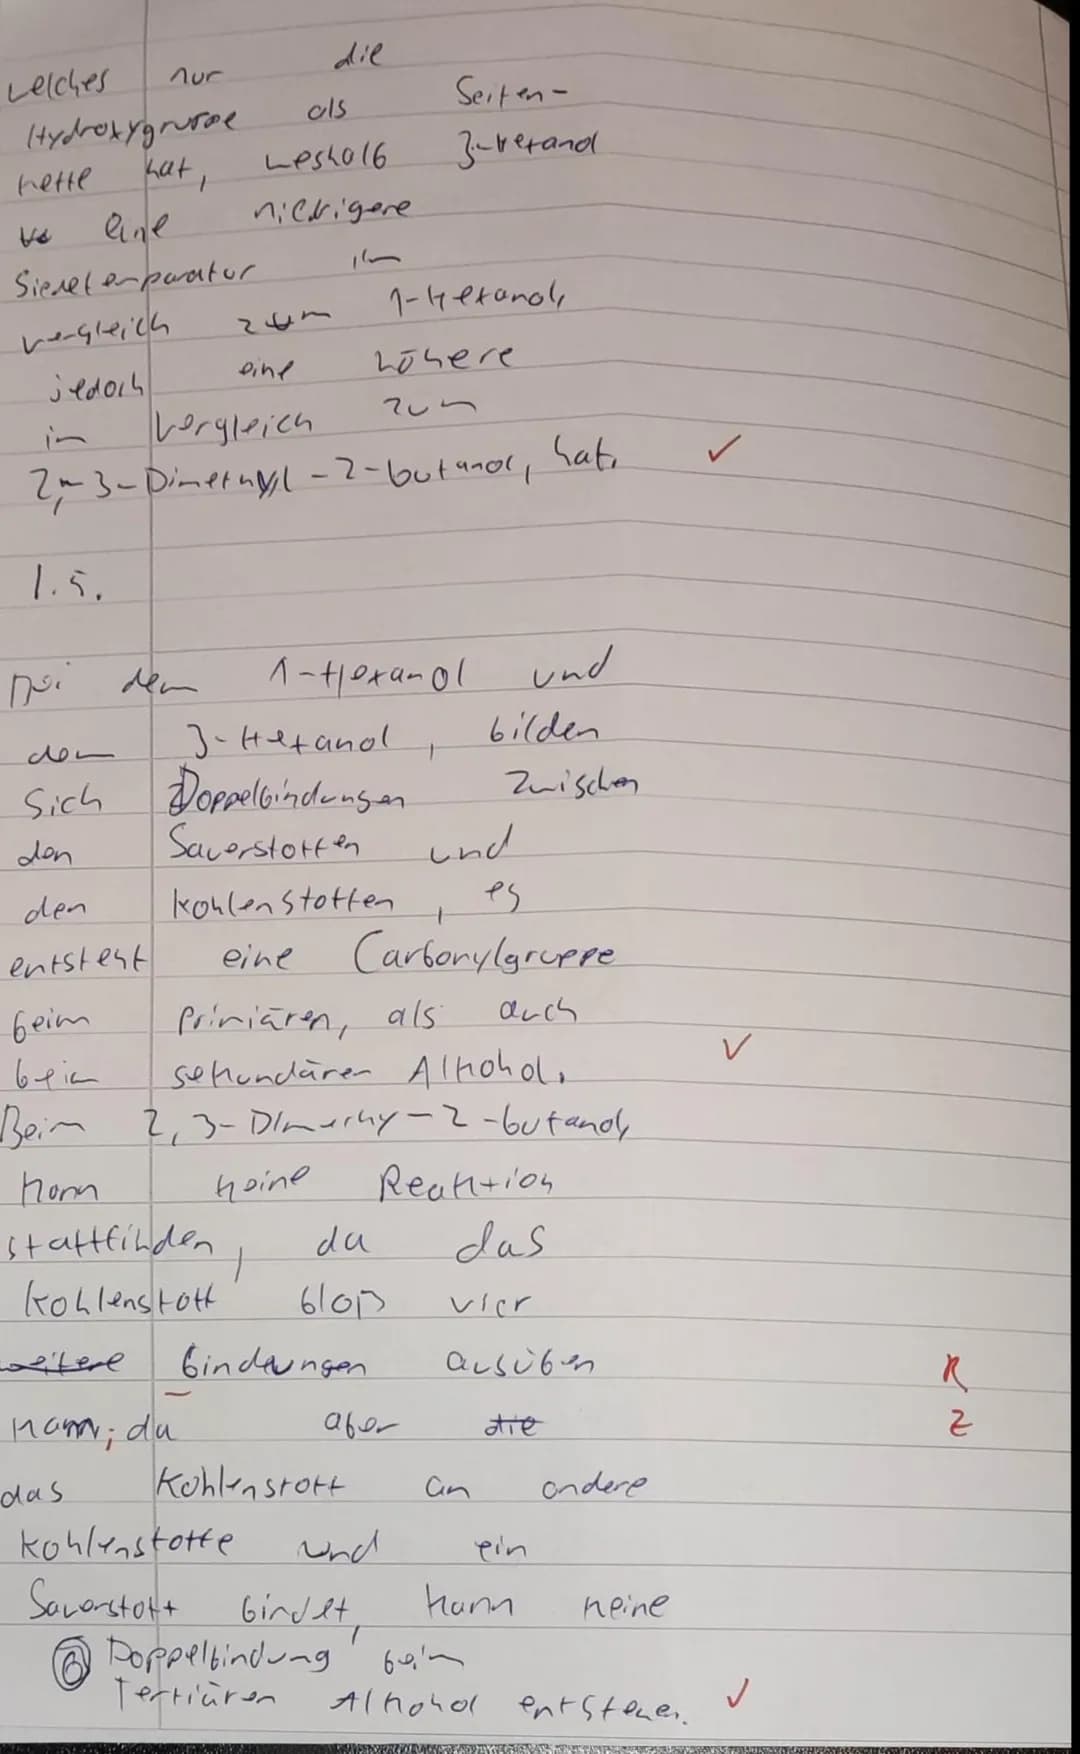 welches nur die
Hydroxygruppe als Seiten-
kette hat, weshalb 3-Hexanol
eine niedrigere
Siedetemparatur im
vergleich zum 1-Hexanol,
jedoch eine höhere
im Vergleich zum
2,3-Dimethyl-2-butanol, hat. ✓
1.5.
Bei dem 1-Hexanol und
dem 3-Hexanol, bilden
sich Doppelbindungen zwischen
den Sauerstoffen und
den Kohlenstoffen, es
entsteht eine Carbonylgruppe
beim primären, als auch
beim sekundären Alkohol. ✓
Beim 2,3-Dimethy-2-butanol,
kann keine Reaktion
stattfinden, da das
Kohlenstoff bloß vier
weitere bindungen ausüben R
kann; da aber die Z
das Kohlenstoff an andere
Kohlenstoffe und ein
Sauerstoff bindet, kann keine
⑥ Doppelbindung beim
Tertiären Alkohol entstehen. ✓